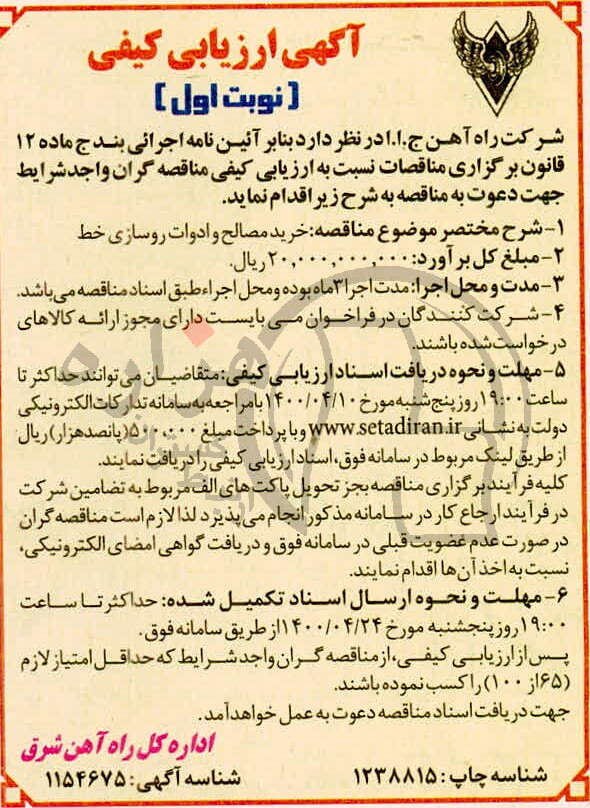 آگهی ارزیابی کیفی
(نوبت اول)
شرکت راه آهن ج.ا.ا در نظر دارد بنابر آئین نامه اجرائی بند ج ماده ۱۲
قانون برگزاری مناقصات نسبت به ارزیابی کیفی مناقصه گران واجد شرایط
جهت دعوت به مناقصه به شرح زیر اقدام نماید.
۱- شرح مختصر موضوع مناقصه: خرید مصالح و ادوات روسازی خط
۲- مبلغ کل برآورد: ۲۰,۰۰۰,۰۰۰,۰۰۰ ریال.
۳- مدت و محل اجرا: مدت اجرا ۳ ماه بوده و محل اجراء طبق اسناد مناقصه می باشد.
۴- شرکت کنندگان در فراخوان می بایست دارای مجوز ارائه کالاهای
درخواست شده باشند.
۵- مهلت و نحوه دریافت اسناد ارزیابی کیفی: متقاضیان می توانند حداکثر تا
ساعت ۱۹:۰۰ روز پنج شنبه مورخ ۱۴۰۰/۰۴/۱۰ با مراجعه به سامانه تدارکات الکترونیکی
دولت به نشانی www.setadiran.ir و با پرداخت مبلغ ۵۰۰,۰۰۰ (پانصد هزار) ریال
از طریق لینک مربوط در سامانه فوق، اسناد ارزیابی کیفی را دریافت نمایند.
کلیه فرآیند برگزاری مناقصه بجز تحویل پاکت های الف مربوط به تضامین شرکت
در فرآیند ارجاع کار در سامانه مذکور انجام می پذیرد لذا لازم است مناقصه گران
در صورت عدم عضویت قبلی در سامانه فوق و دریافت گواهی امضای الکترونیکی،
نسبت به اخذ آن ها اقدام نمایند.
۶- مهلت و نحوه ارسال اسناد تکمیل شده: حداکثر تا ساعت
۱۹:۰۰ روز پنجشنبه مورخ ۱۴۰۰/۰۴/۲۴ از طریق سامانه فوق.
پس از ارزیابی کیفی، از مناقصه گران واجد شرایط که حداقل امتیاز لازم
(۶۵ از ۱۰۰) را کسب نموده باشند.
جهت دریافت اسناد مناقصه دعوت به عمل خواهد آمد.
اداره کل راه آهن شرق
شناسه چاپ: ۱۲۳۸۸۱۵
شناسه آگهی: ۱۱۵۴۶۷۵